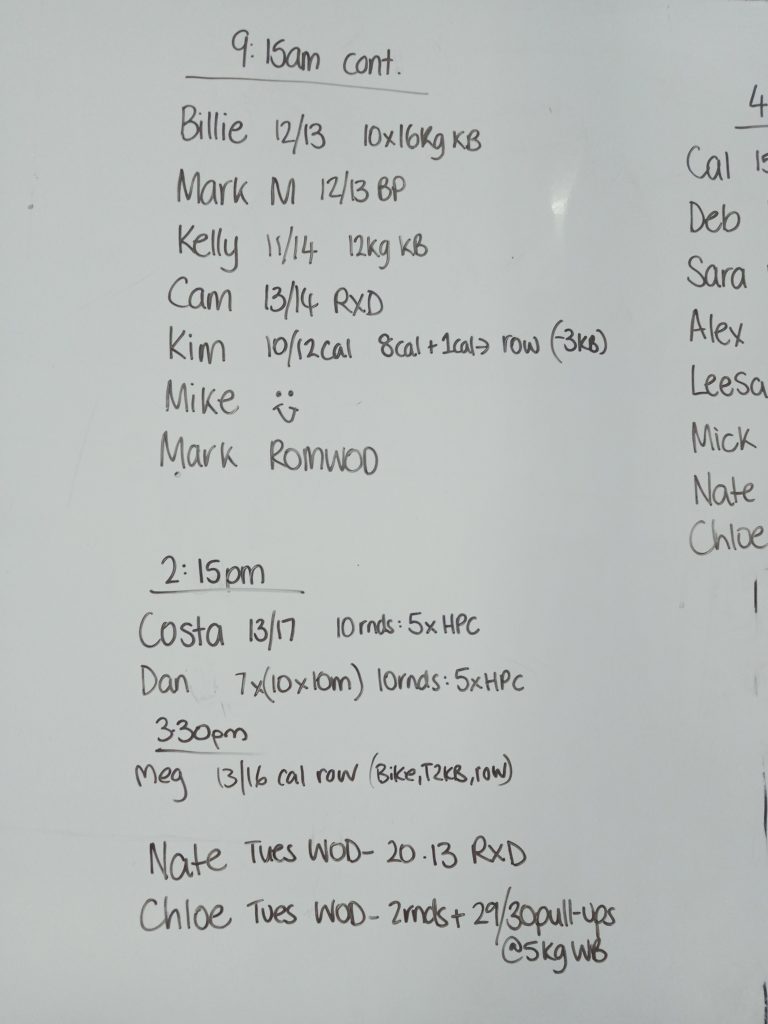 9:15am cont.
Billie 12/13 10x16kg KB
Mark M 12/13 BP
Kelly 11/14 12kg KB
Cam 13/14 RXD
Kim 10/12cal 8cal+1cal→ row (-3KB)
Mike
Mark ROMWOD
2:15pm
Costa 13/17 10rnds: 5xHPC
Dan 7x(10x10m) 10rnds: 5xHPC
3:30pm
Meg 13/16 cal row (Bike,T2KB,row)
Nate Tues WOD- 20.13 RXD
Chloe Tues WOD- 2rnds+ 29/30pull-ups
@5kg WB
4
Cal
Deb
Sara
Alex
Leesa
Mick
Nate
Chloe